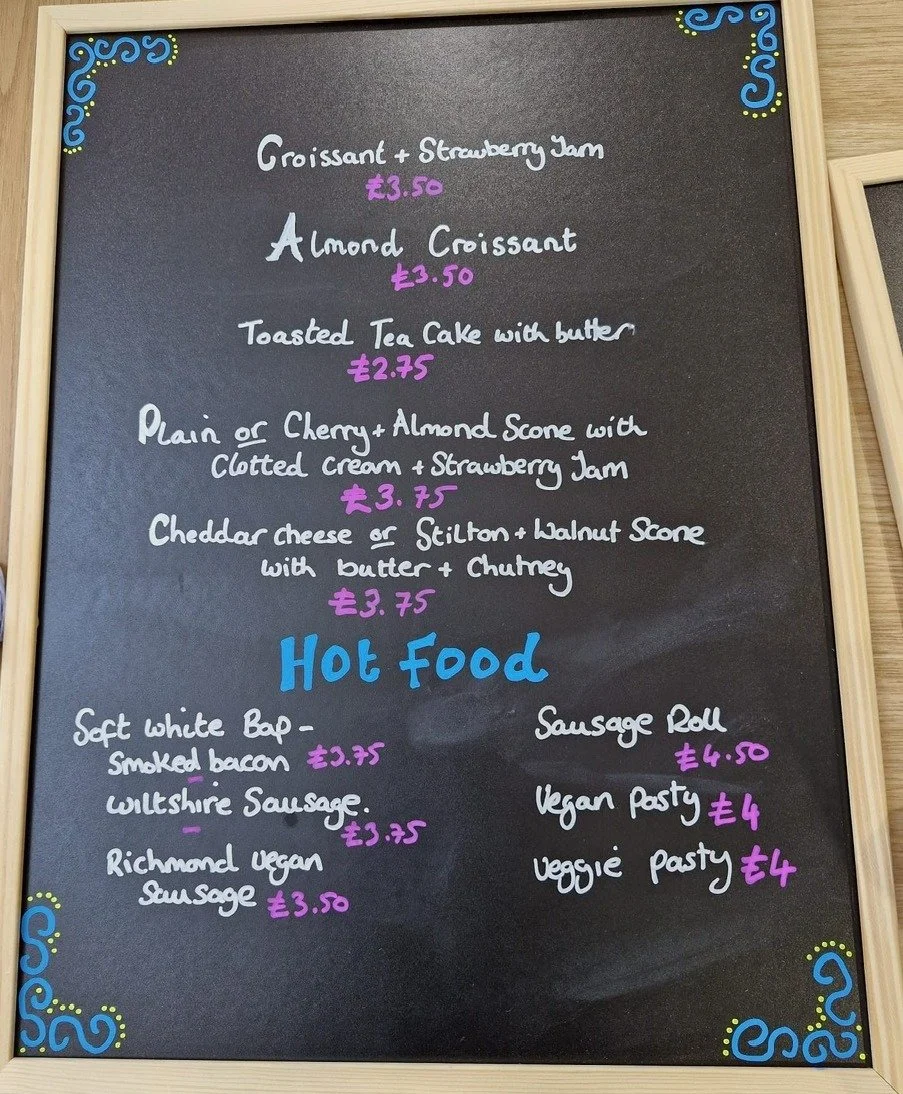 Croissant + Strawberry Jam
£3.50
Almond Croissant
£3.50
Toasted Tea Cake with butter
£2.75
Plain or Cherry + Almond Scone with
Clotted cream + Strawberry Jam
£3.75
Cheddar cheese or Stilton + Walnut Scone
with butter + Chutney
£3.75
Hot Food
Soft white Bap -
Smoked bacon £3.75
Wiltshire Sausage.
£3.75
Richmond vegan
Sausage £3.50
Sausage Roll
£4.50
Vegan Pasty £4
Veggie Pasty £4